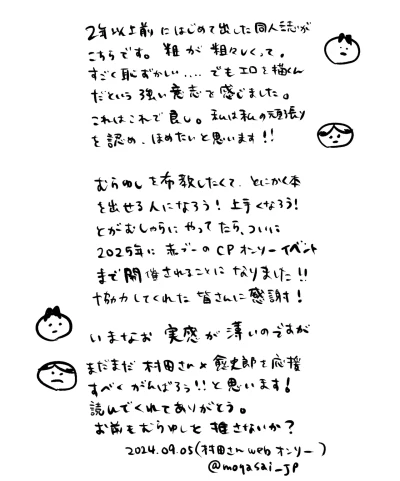 2年以上前にはじめて出した同人誌が
こちらです。粗が粗々しくって。
すごく恥ずかしい....でもエロを描くん
だという強い意志を感じました。
これはこれで良し。私は私の頑張り
を認め、ほめたいと思います!!
むらゆしを布教したくて、とにかく本
を出せる人になろう!上手くなろう!
とがむしゃらにやってたら、ついに
2025年に赤ブーのCPオンリーイベント
まで開催されることになりました!!
協力してくれた皆さんに感謝!
いまなお実感が薄いのですが
まだまだ村田さん×愈史郎を応援
すべくがんばろう!!と思います!
読んでくれてありがとう。
お前もむらゆしと推さないか?
2024.09.05(村田さんwebオンリー)
@mogasai_JP